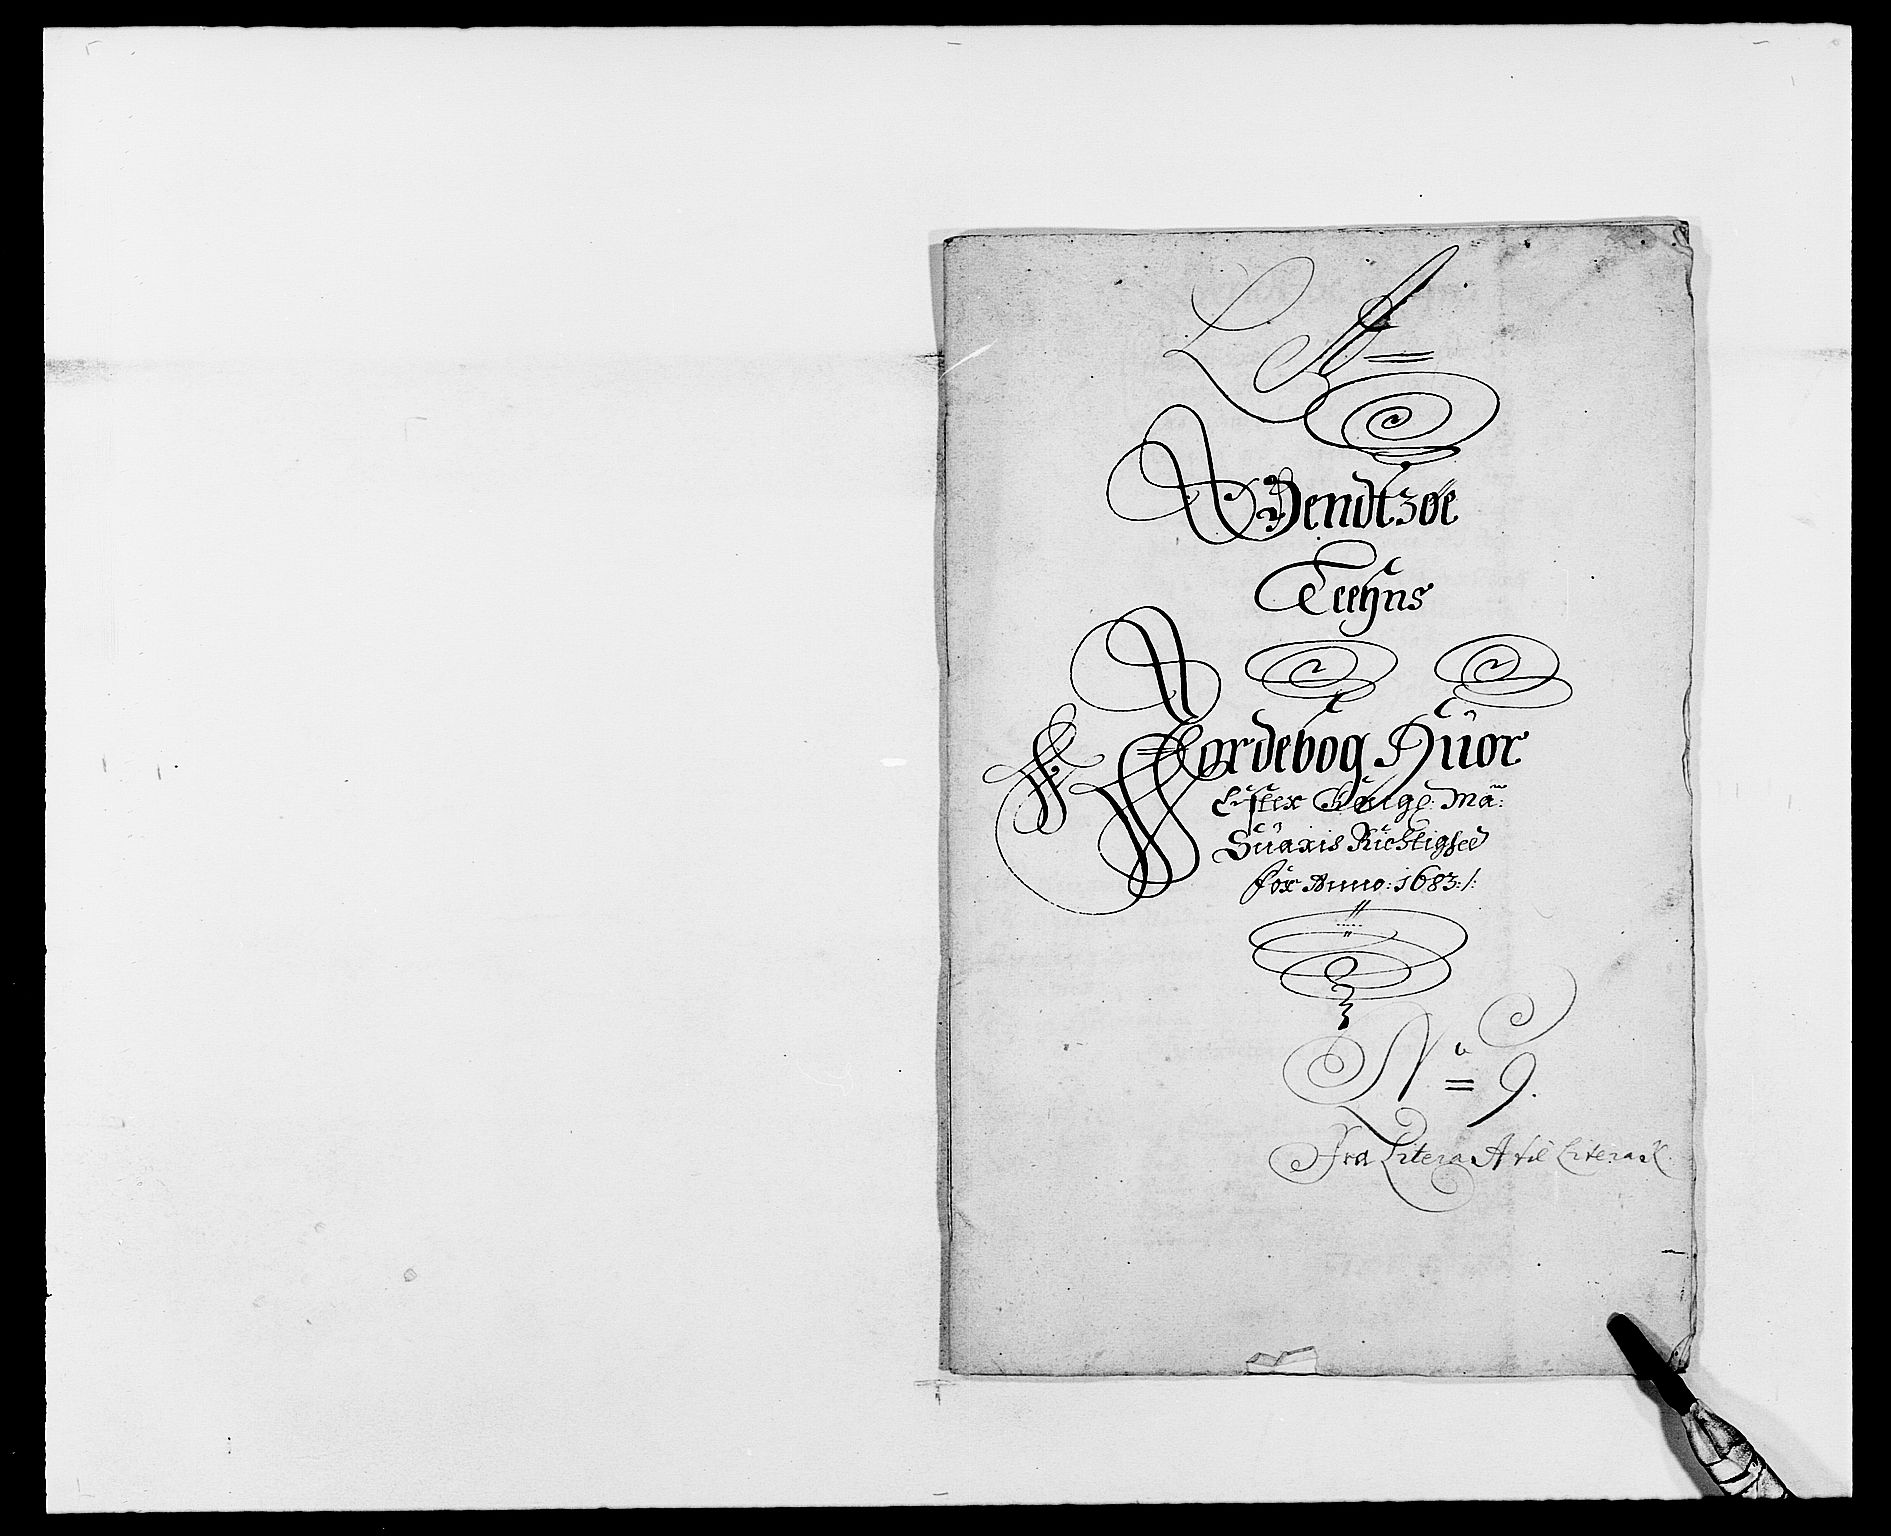 L A =
Wendtzøe
Leehns
Jordebog Huor
Efter Kongl: Ma:
Suaris Richtighed
for Anno: 1683:/:
No = 9.
Fra Litera A til Litera